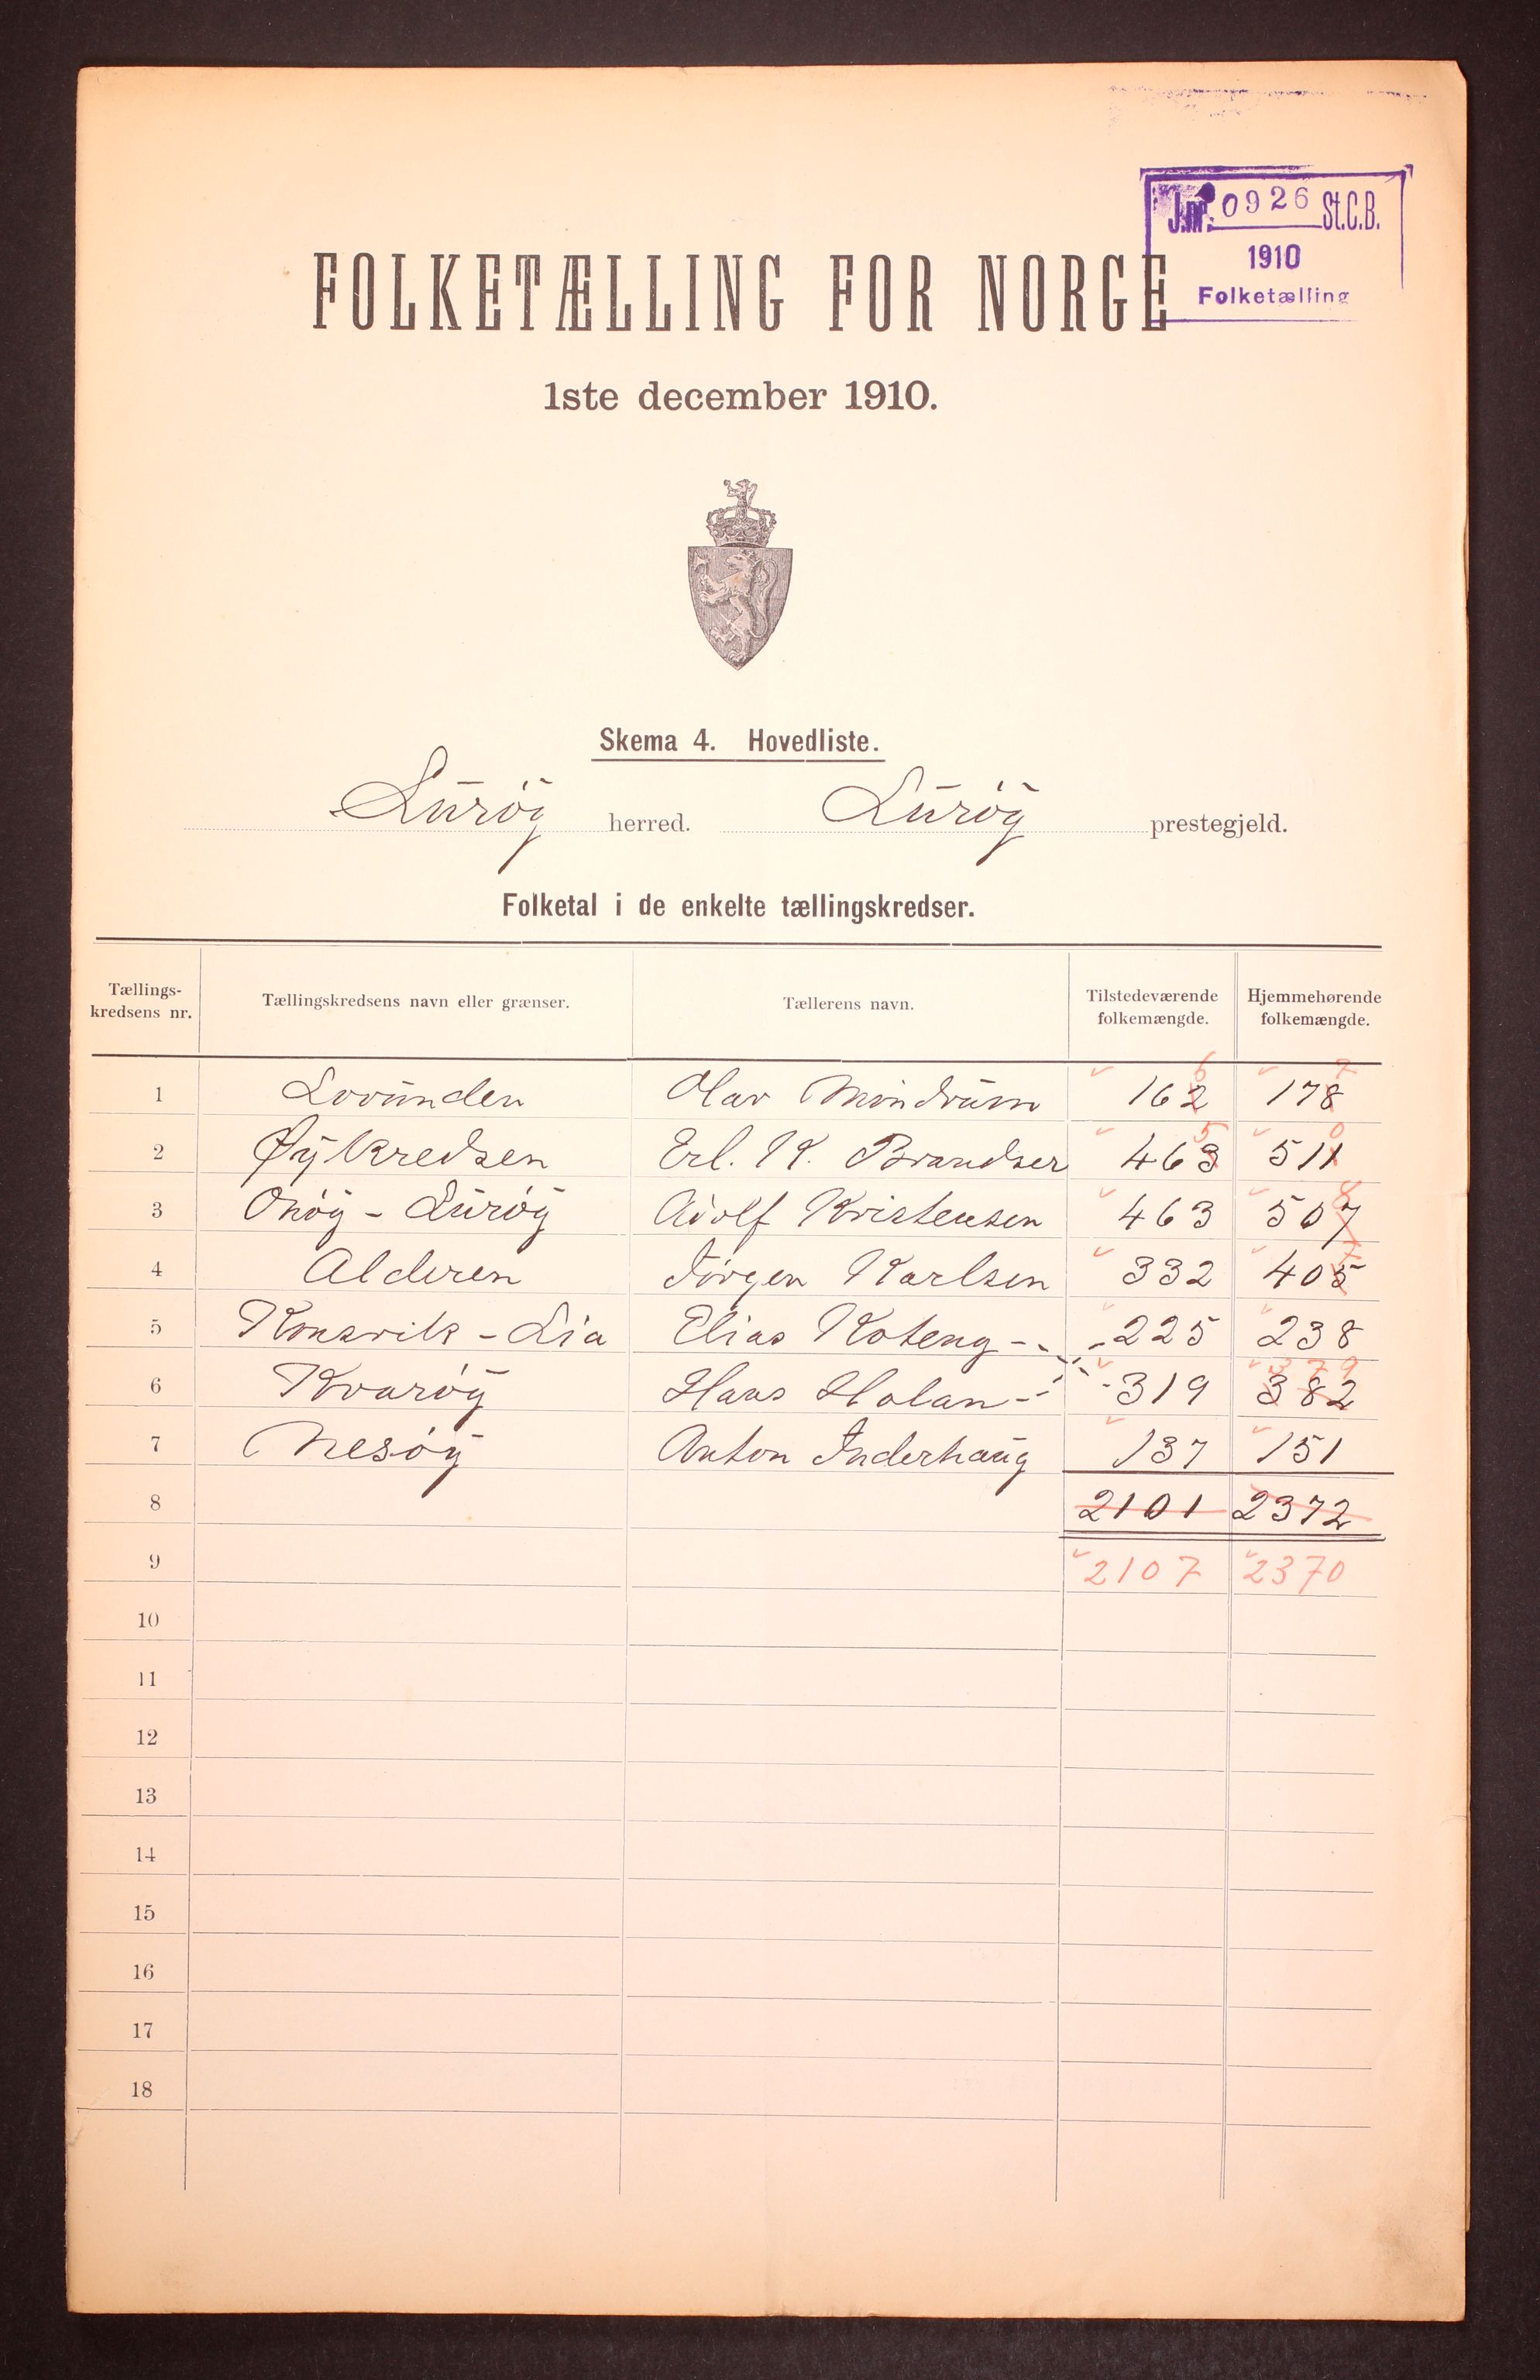 J.nr. 0926 St.C.B.
1910
Folketælling
FOLKETÆLLING FOR NORGE
1ste december 1910.
Skema 4. Hovedliste.
Lurøy herred. Lurøy prestegjeld.
Folketal i de enkelte tællingskredser.
Tællings-kredsens nr. Tællingskredsens navn eller grænser. Tællerens navn. Tilstedeværende folkemængde. Hjemmehørende folkemængde.
6 7
1 Lovunden Olav Mindrum 162 178
5 0
2 Øykredsen Erl. K. Brandser 463 511
8
3 Onøy - Lurøy Adolf Kristensen 463 507
7
4 Alderen Jørgen Karlsen 332 405
5 Konsvik - Lia Elias Koteng 225 238
3 7 9
6 Kvarøy Hans Holan 319 382
7 Nesøy Anton Inderhaug 137 151
8 2101 2372
9 2107 2370
10
11
12
13
14
15
16
17
18